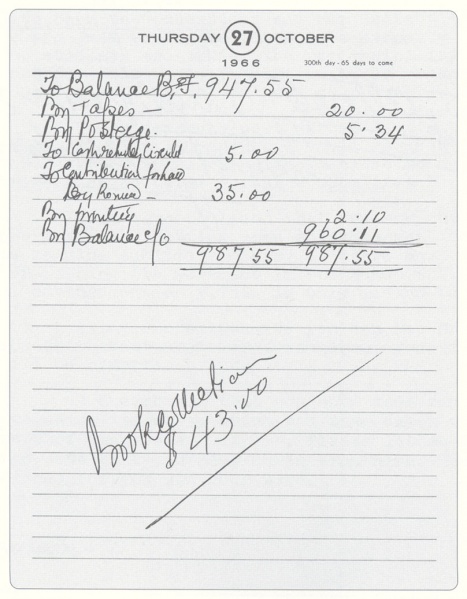 THURSDAY 27 OCTOBER
1966 300th day - 65 days to come
To Balance B.F. 947.55
By Tapes — 20.00
By Postage. 5.34
To Cash 5.00
To Contribution
By — 35.00
By printing 2.10
By Balance c/o 960.11
987.55 987.55
Book collection
$ 43.00